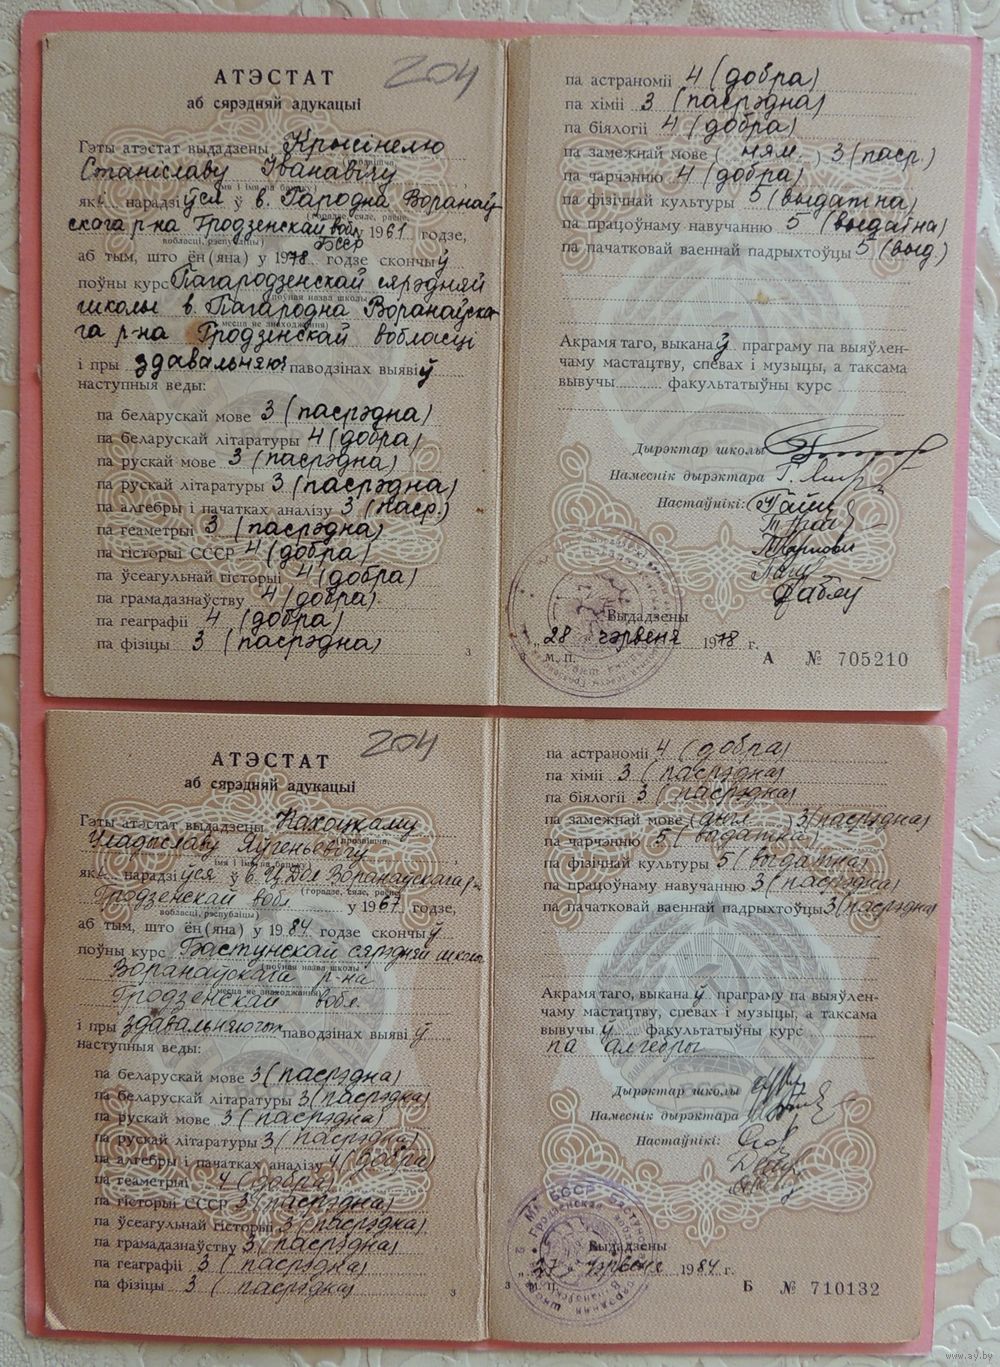 204
АТЭСТАТ
аб сярэдняй адукацыі
Гэты атэстат выдадзены Крысінелю
(прозвішча,
Станіславу Іванавічу
імя і імя па бацьку)
які нарадзіўся ў в. Гародна Воранаў-
(горадзе, сяле, раёне,
скога р-на Гродзенскай вобл 1961 годзе,
вобласці, рэспубліцы) БССР
аб тым, што ён(яна) у 1978 годзе скончыў
поўны курс Пагародзенскай сярэдняй
(поўная назва школы
школы в. Пагародна Воранаўска-
і месца яе знаходжання)
га р-на Гродзенскай вобласці
і пры здавальняюч паводзінах выявіў
наступныя веды:
па беларускай мове 3 (пасрэдна)
па беларускай літаратуры 4 (добра)
па рускай мове 3 (пасрэдна)
па рускай літаратуры 3 (пасрэдна)
па алгебры і пачатках аналізу 3 (паср.)
па геаметрыі 3 (пасрэдна)
па гісторыі СССР 4 (добра)
па ўсеагульнай гісторыі 4 (добра)
па грамадазнаўству 4 (добра)
па геаграфіі 4 (добра)
па фізіцы 3 (пасрэдна)
3
па астраноміі 4 (добра)
па хіміі 3 (пасрэдна)
па біялогіі 4 (добра)
па замежнай мове ( ням. ) 3 (паср.)
па чарчэнню 4 (добра)
па фізічнай культуры 5 (выдатна)
па працоўнаму навучанню 5 (выдатна)
па пачатковай ваеннай падрыхтоўцы 5 (выд)
Акрамя таго, выканаў праграму па выяўлен-
чаму мастацтву, спевах і музыцы, а таксама
вывучы факультатыўны курс
Дырэктар школы
Намеснік дырэктара
Настаўнікі:
Выдадзены
„28 чэрвеня 1978 г.
М. П.
А № 705210
204
АТЭСТАТ
аб сярэдняй адукацыі
Гэты атэстат выдадзены Нахоцкаму
(прозвішча,
Уладыславу Яўгеньевічу
імя і імя па бацьку)
які нарадзіўся ў в. Воранаўскага р-
(горадзе, сяле, раёне,
Гродзенскай вобл. у 1967 годзе,
вобласці, рэспубліцы)
аб тым, што ён(яна) у 1984 годзе скончыў
поўны курс Бастунскай сярэдняй школы
(поўная назва школы
Воранаўскага р-на
і месца яе знаходжання)
Гродзенскай вобл.
і пры здавальняючых паводзінах выявіў
наступныя веды:
па беларускай мове 3 (пасрэдна)
па беларускай літаратуры 3 (пасрэдна)
па рускай мове 3 (пасрэдна)
па рускай літаратуры 3 (пасрэдна)
па алгебры і пачатках аналізу 4 (добра)
па геаметрыі 4 (добра)
па гісторыі СССР 3 (пасрэдна)
па ўсеагульнай гісторыі 3 (пасрэдна)
па грамадазнаўству 3 (пасрэдна)
па геаграфіі 3 (пасрэдна)
па фізіцы 3 (пасрэдна)
3
па астраноміі 4 (добра)
па хіміі 3 (пасрэдна)
па біялогіі 3 (пасрэдна)
па замежнай мове (англ. ) 3 (пасрэдна)
па чарчэнню 5 (выдатна)
па фізічнай культуры 5 (выдатна)
па працоўнаму навучанню 3 (пасрэдна)
па пачатковай ваеннай падрыхтоўцы 3 (пасрэдна)
Акрамя таго, выканаў праграму па выяўлен-
чаму мастацтву, спевах і музыцы, а таксама
вывучыў факультатыўны курс
па алгебры
Дырэктар школы
Намеснік дырэктара
Настаўнікі:
Выдадзены
„27 чэрвеня 1984 г.
М. П.
Б № 710132
www.ay.by